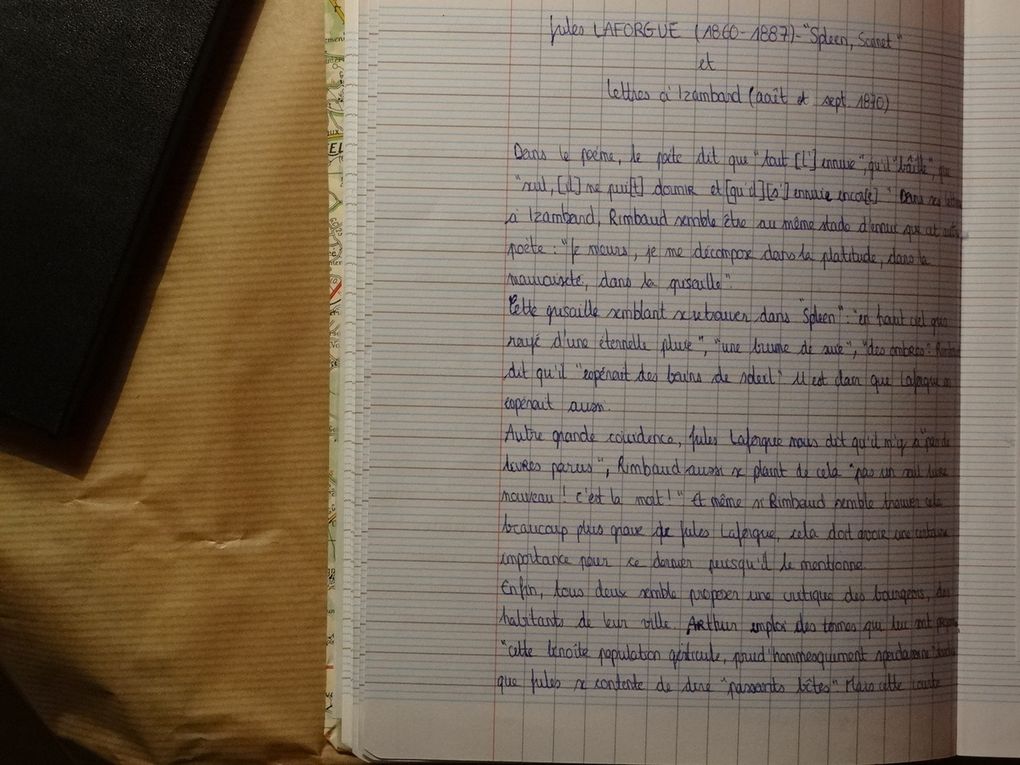 Jules LAFORGUE (1860-1887)-"Spleen, Sonnet"
et
Lettres à Izambard (août et sept 1870)
Dans le poème, le poète dit que "tout [l']ennuie", qu'il "bâille", que
"seul, [il] ne peu[t] dormir et [qu'il][s']ennuie encor[e]" Dans ses lettres
à Izambard, Rimbaud semble être au même stade d'ennui que cet autre
poète : "je meurs, je me décompose dans la platitude, dans la
mauvaiseté, dans la grisaille".
Cette grisaille semblant se retrouver dans "Spleen" : "en haut ciel gris
rayé d'une éternelle pluie", "une brume de suie", "des ombres". Rimbaud
dit qu'il "espérait des bains de soleil" Il est clair que Laforgue en
espérait aussi.
Autre grande coïncidence, Jules Laforgue nous dit qu'il n'y a "pas de
livres parus", Rimbaud aussi se plaint de cela "pas un seul livre
nouveau ! c'est la mort !" Et même si Rimbaud semble trouver cela
beaucoup plus grave de Jules Laforgue, cela doit avoir une certaine
importance pour ce dernier puisqu'il le mentionne.
Enfin, tous deux semble proposer une critique des bourgeois, des
habitants de leur ville. Arthur emploi des termes qui lui ont
"cette benoîte population gesticule, prud'hommesquement spadassine"
que Jules se contente de dire "passants bêtes" Mais cette